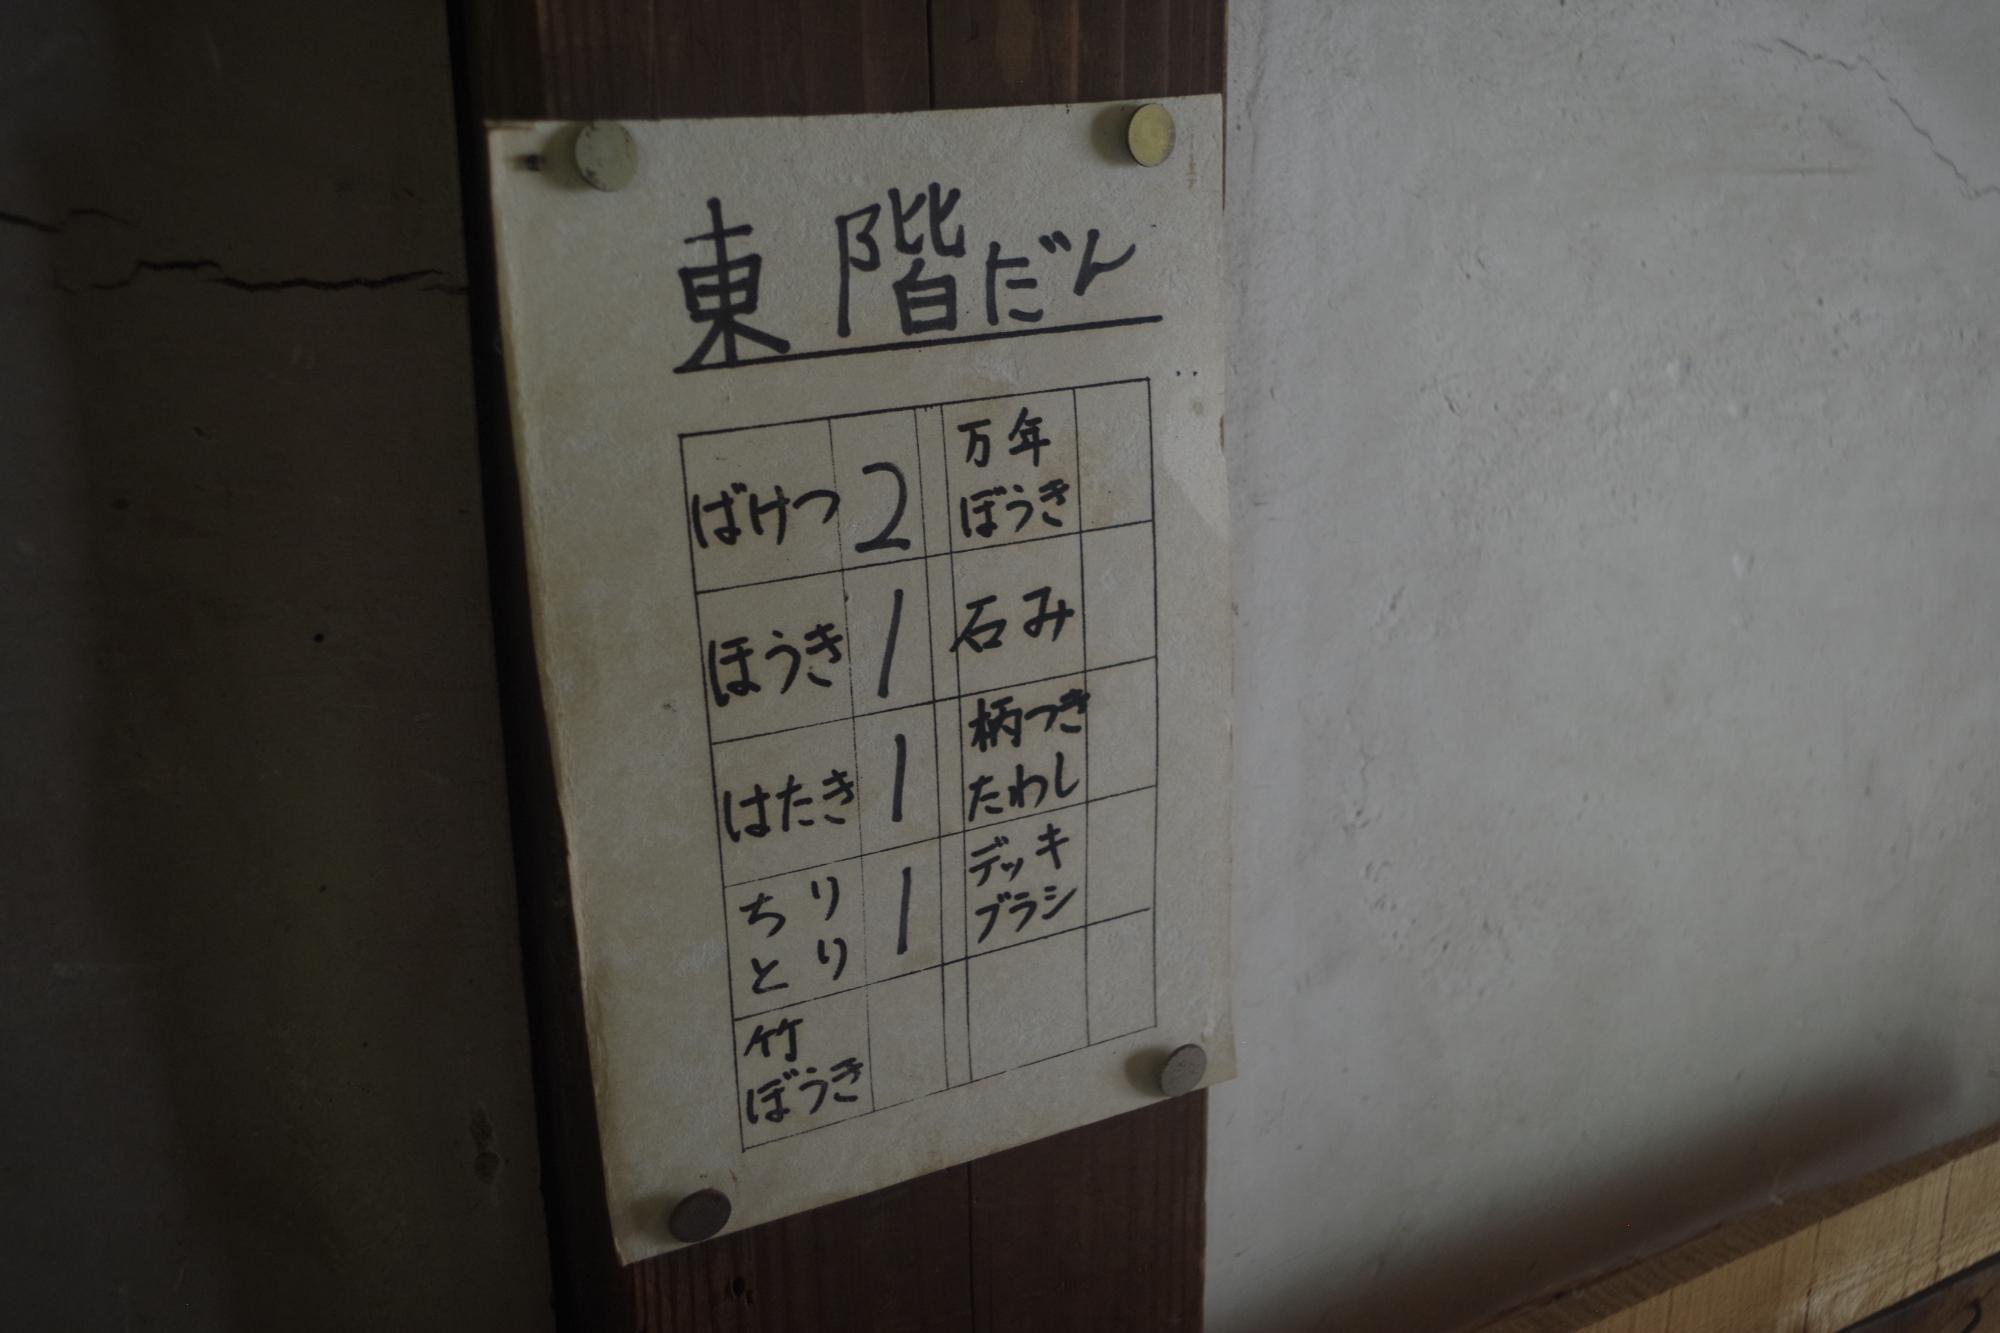 東階だん
ばけつ 2
ほうき 1
はたき 1
ちり
とり 1
竹
ぼうき
万年
ぼうき
石み
柄つき
たわし
デッキ
ブラシ